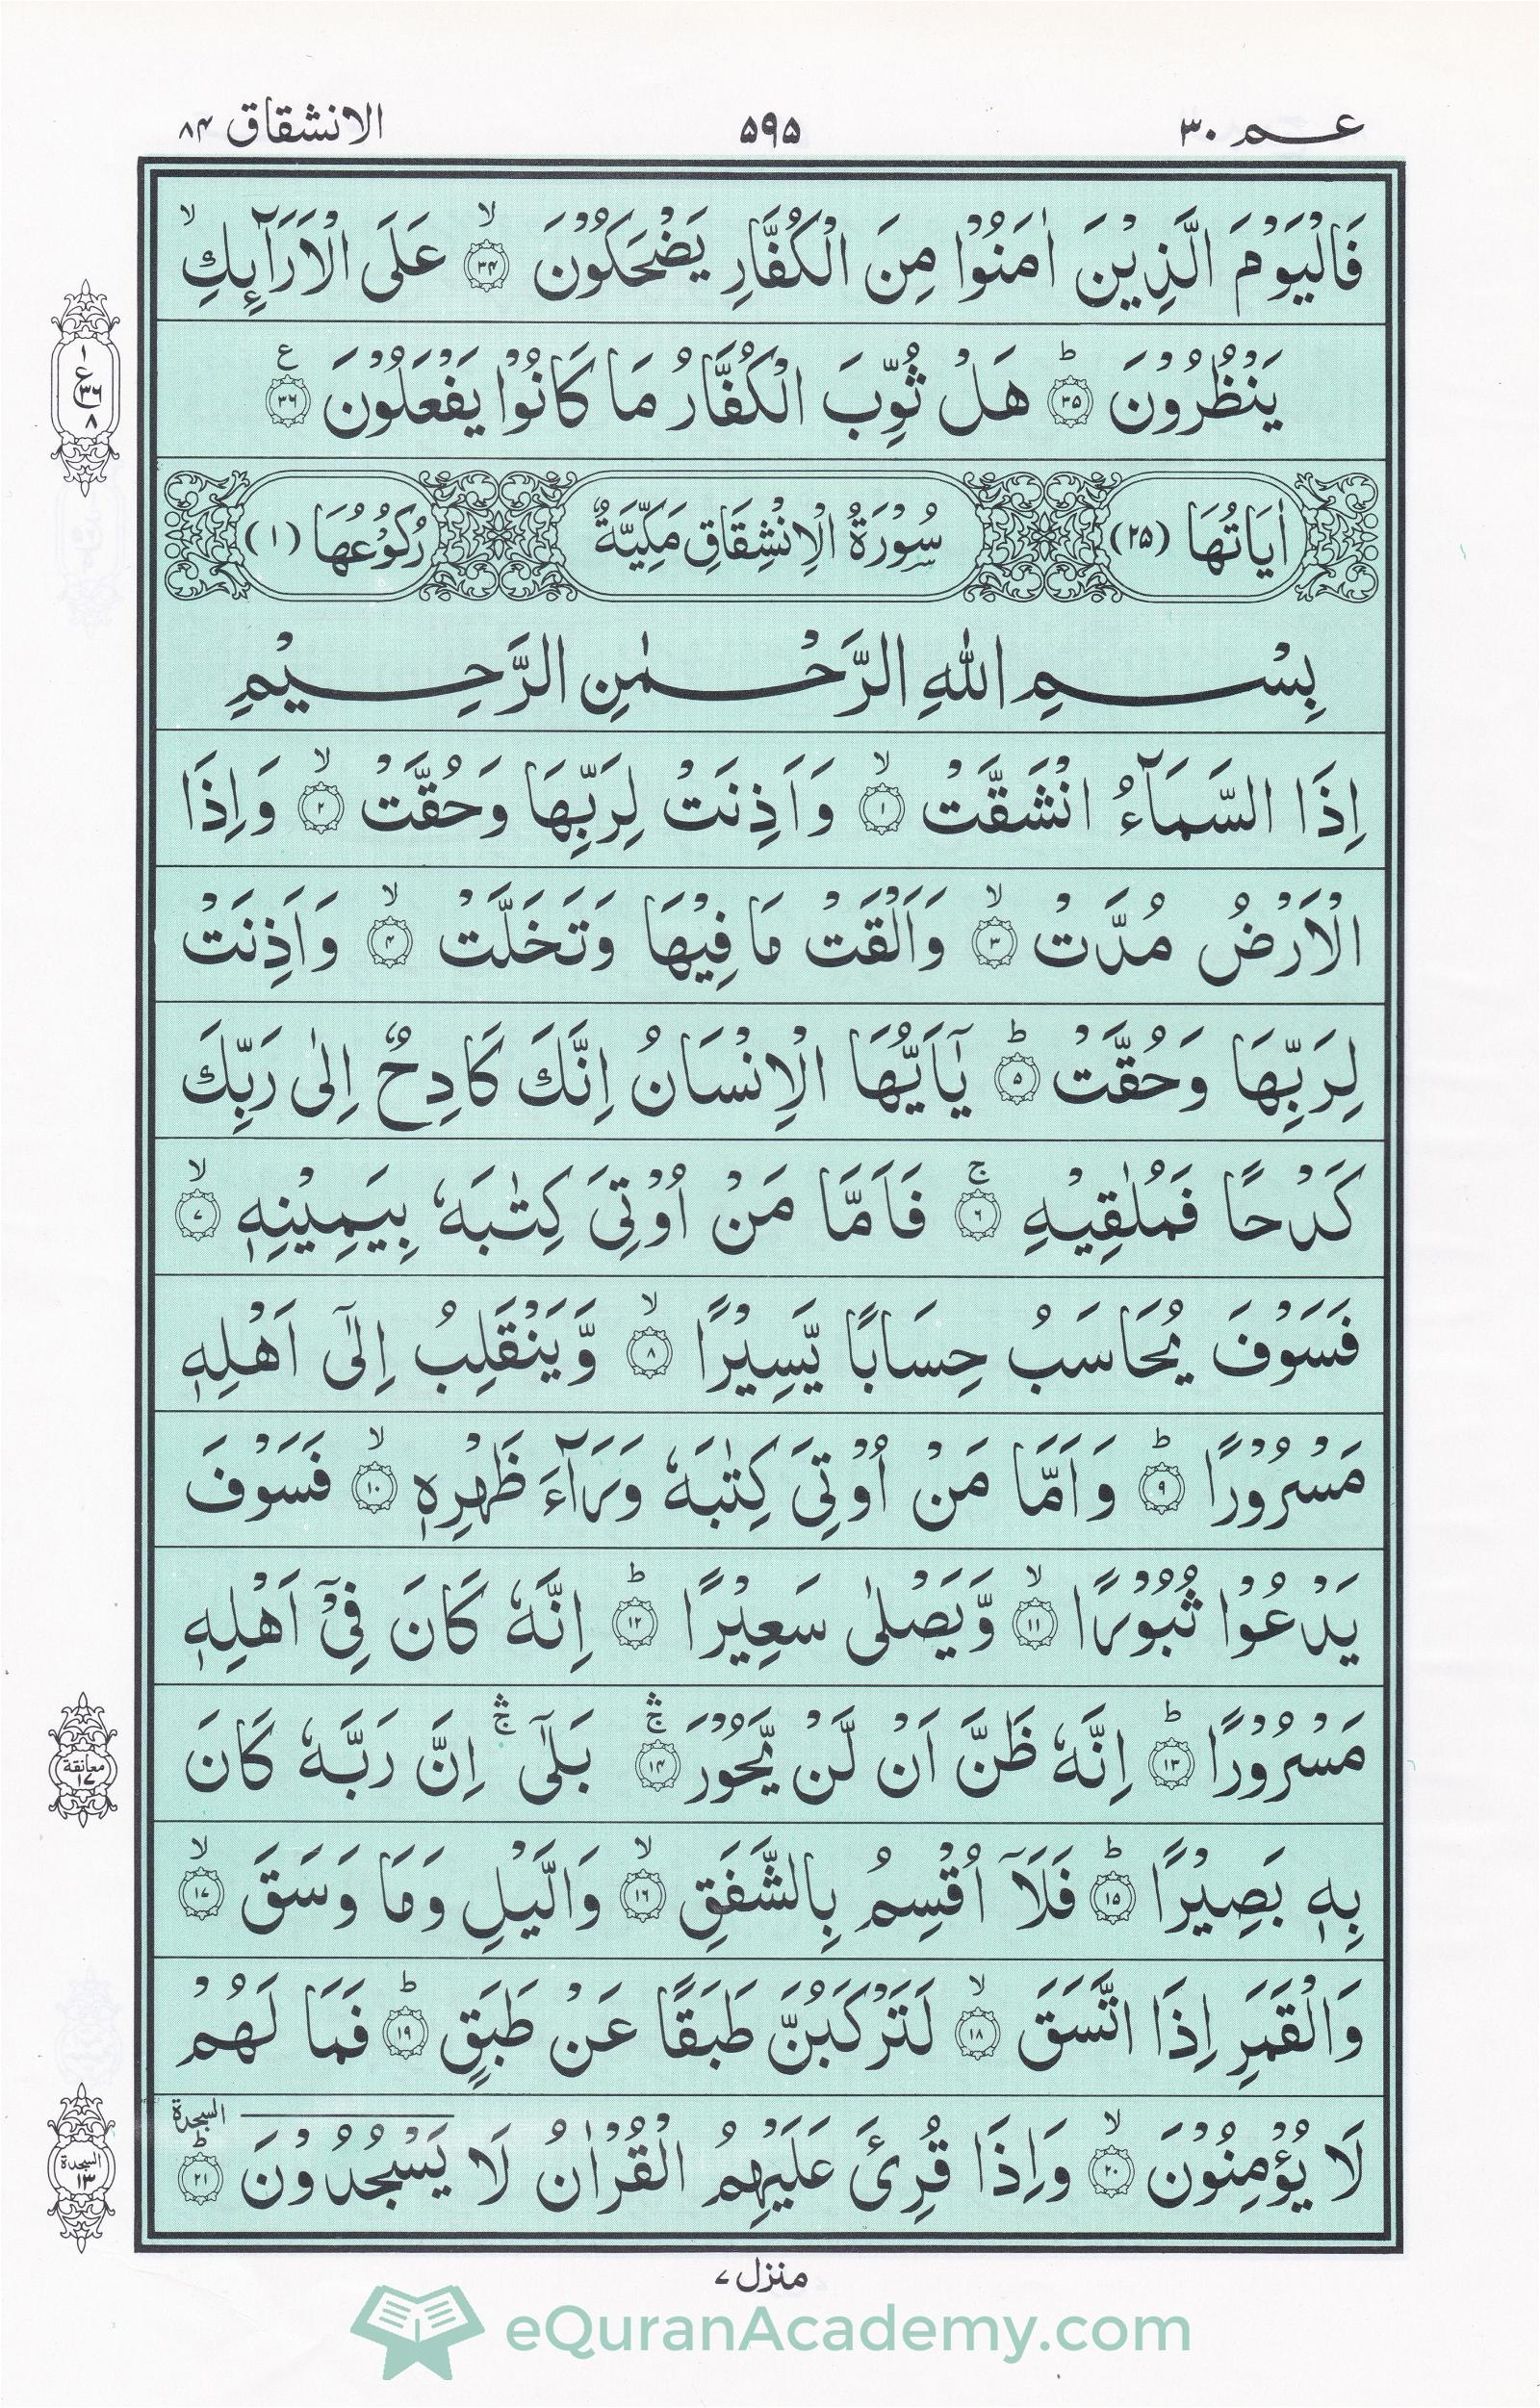 عم ۳۰
۵۹۵
الانشقاق ۸۴
فَالْيَوْمَ الَّذِيْنَ اٰمَنُوْا مِنَ الْكُفَّارِ يَضْحَكُوْنَ ۙ﴿۳۴﴾ عَلَى الْاَرَآىِٕكِ ۙ
يَنْظُرُوْنَ ؕ﴿۳۵﴾ هَلْ ثُوِّبَ الْكُفَّارُ مَا كَانُوْا يَفْعَلُوْنَ ﴿۳۶﴾ ع
۱ ع ۳۶ ۸
اٰيَاتُهَا (۲۵) سُوْرَةُ الْاِنْشِقَاقِ مَكِّيَّةٌ رُكُوْعُهَا (۱)
بِسْمِ اللّٰهِ الرَّحْمٰنِ الرَّحِيْمِ
اِذَا السَّمَآءُ انْشَقَّتْ ۙ﴿۱﴾ وَاَذِنَتْ لِرَبِّهَا وَحُقَّتْ ۙ﴿۲﴾ وَاِذَا
الْاَرْضُ مُدَّتْ ۙ﴿۳﴾ وَاَلْقَتْ مَا فِيْهَا وَتَخَلَّتْ ۙ﴿۴﴾ وَاَذِنَتْ
لِرَبِّهَا وَحُقَّتْ ؕ﴿۵﴾ يٰۤاَيُّهَا الْاِنْسَانُ اِنَّكَ كَادِحٌ اِلٰى رَبِّكَ
كَدْحًا فَمُلٰقِيْهِ ۚ﴿۶﴾ فَاَمَّا مَنْ اُوْتِيَ كِتٰبَهٗ بِيَمِيْنِهٖ ۙ﴿۷﴾
فَسَوْفَ يُحَاسَبُ حِسَابًا يَّسِيْرًا ۙ﴿۸﴾ وَّيَنْقَلِبُ اِلٰۤى اَهْلِهٖ
مَسْرُوْرًا ؕ﴿۹﴾ وَاَمَّا مَنْ اُوْتِيَ كِتٰبَهٗ وَرَآءَ ظَهْرِهٖ ۙ﴿۱۰﴾ فَسَوْفَ
يَدْعُوْا ثُبُوْرًا ۙ﴿۱۱﴾ وَّيَصْلٰى سَعِيْرًا ؕ﴿۱۲﴾ اِنَّهٗ كَانَ فِيْۤ اَهْلِهٖ
مَسْرُوْرًا ؕ﴿۱۳﴾ اِنَّهٗ ظَنَّ اَنْ لَّنْ يَّحُوْرَ ۛۚ﴿۱۴﴾ بَلٰۤى ۛۚ اِنَّ رَبَّهٗ كَانَ
معانقة ۱۷
بِهٖ بَصِيْرًا ؕ﴿۱۵﴾ فَلَاۤ اُقْسِمُ بِالشَّفَقِ ۙ﴿۱۶﴾ وَالَّيْلِ وَمَا وَسَقَ ۙ﴿۱۷﴾
وَالْقَمَرِ اِذَا اتَّسَقَ ۙ﴿۱۸﴾ لَتَرْكَبُنَّ طَبَقًا عَنْ طَبَقٍ ؕ﴿۱۹﴾ فَمَا لَهُمْ
لَا يُؤْمِنُوْنَ ۙ﴿۲۰﴾ وَاِذَا قُرِئَ عَلَيْهِمُ الْقُرْاٰنُ لَا يَسْجُدُوْنَ ؕ﴿۲۱﴾ السجدة
السجدة ۱۳
منزل ۷
eQuranAcademy.com